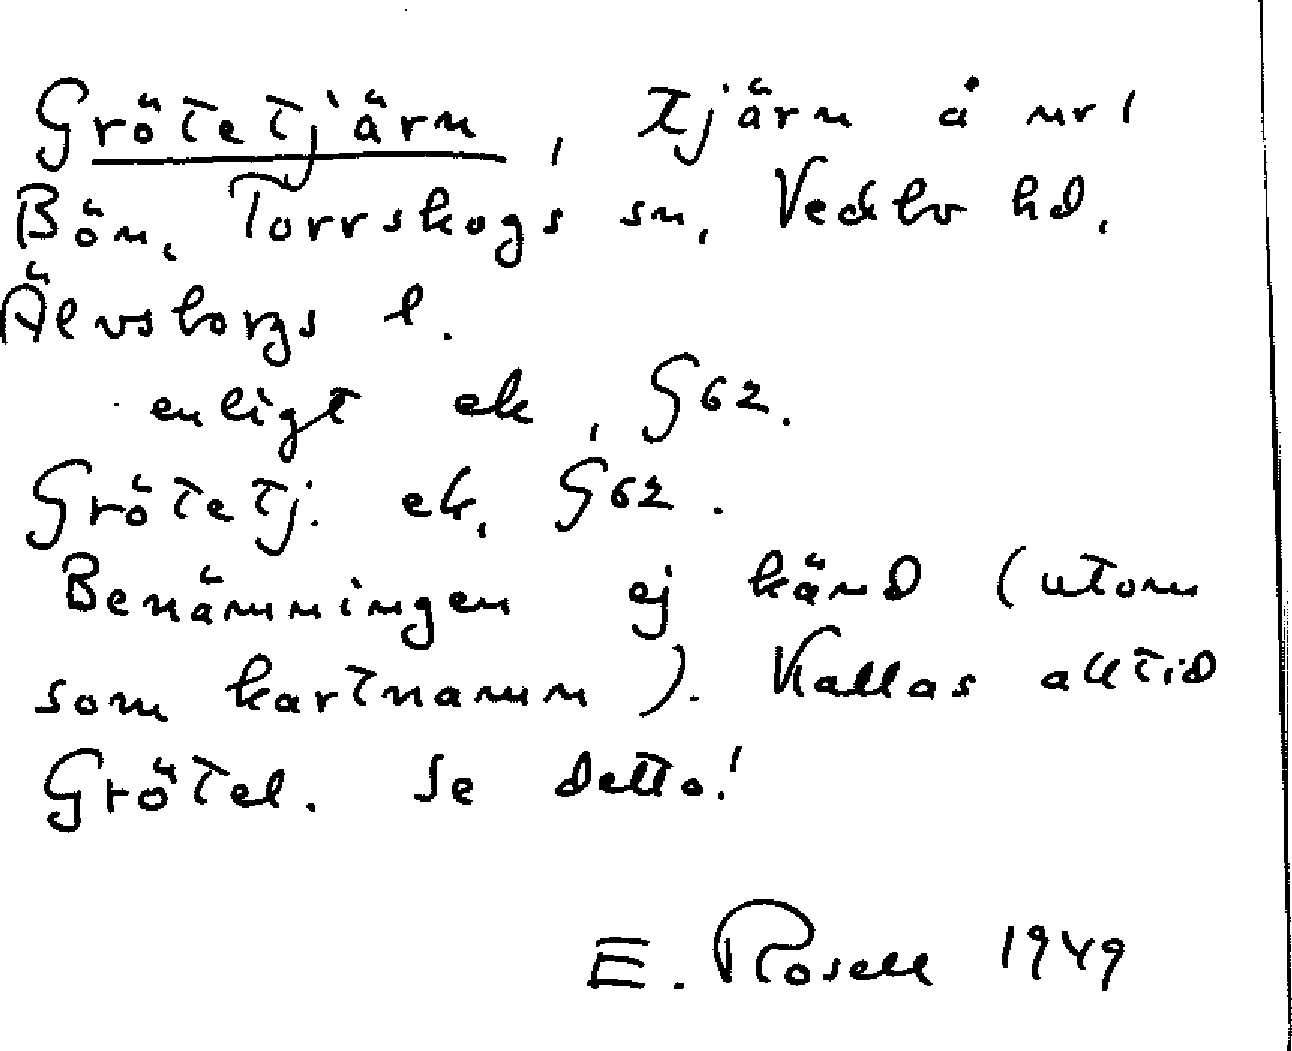 Grötetjärn, tjärn å nr 1
Bön, Torrskogs sn, Vedbo hd,
Älvsborgs l.
enligt ek, §62.
Grötetj. ek, §62.
Benämningen ej känd (utom
som kartnamn). Kallas alltid
Grötel. Se detto!
E. Rosell 1949